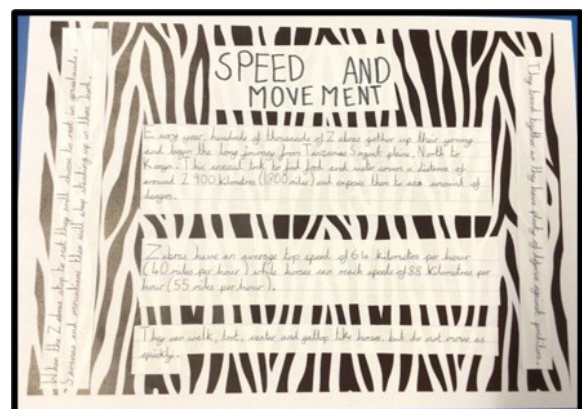 SPEED AND
MOVEMENT
Every year, hundreds of thousands of Zebras gather up their young
and begin the long journey from Tanzanias plains, North to
Kenya. This annual trek to find food and water covers a distance of
around 2 900 kilometres (1800 miles) and exposes them to amount of
danger.
Zebras have an average top speed of 64 kilometres per hour
(40 miles per hour) while horses can reach speeds of 88 kilometres per
hour (55 miles per hour).
They can walk, trot, canter and gallop like horses, but do not move as
quickly.
When the Zebras stop to rest they will choose to rest in grasslands,
Savannas and mountains then will sleep standing up in their herd.
They together as they have plenty of against predators.